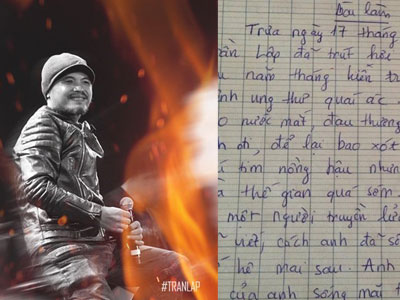 Bài làm
Trưa ngày 17 tháng
Lập đã trút hơi
năm tháng kiên
ung thư quái ác
nước mắt đau thương
đi, để lại bao xót
tim nồng hậu nhưng
thế gian quá sớm
một người truyền lửa
cách anh đã
mai sau. Anh
của anh sống mãi
#TRANLAP